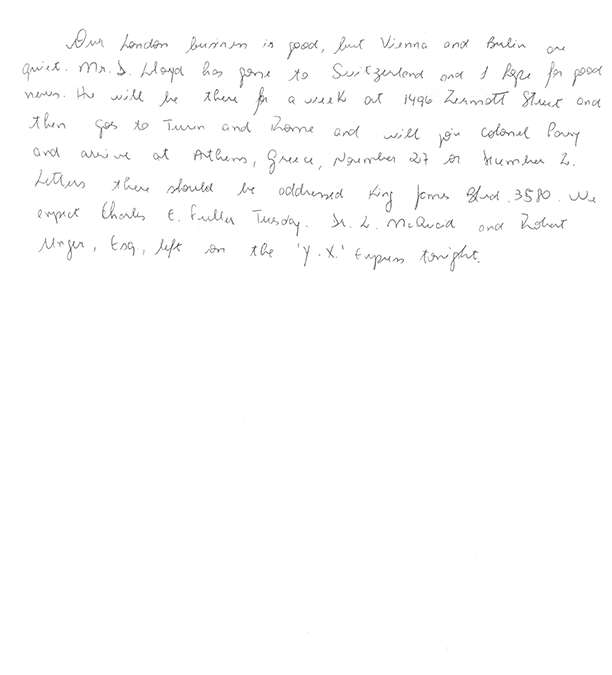 Our London business is good, but Vienna and Berlin are
quiet. Mr. D. Lloyd has gone to Switzerland and I hope for good
news. He will be there for a week at 1496 Zermott Street and
then goes to Turin and Rome and will join Colonel Parry
and arrive at Athens, Greece, November 27 or December 2.
Letters there should be addressed King James Blvd. 3580. We
expect Charles E. Fuller Tuesday. Dr. L. McQuaid and Robert
Unger, Esq., left on the 'Y.X.' Express tonight.